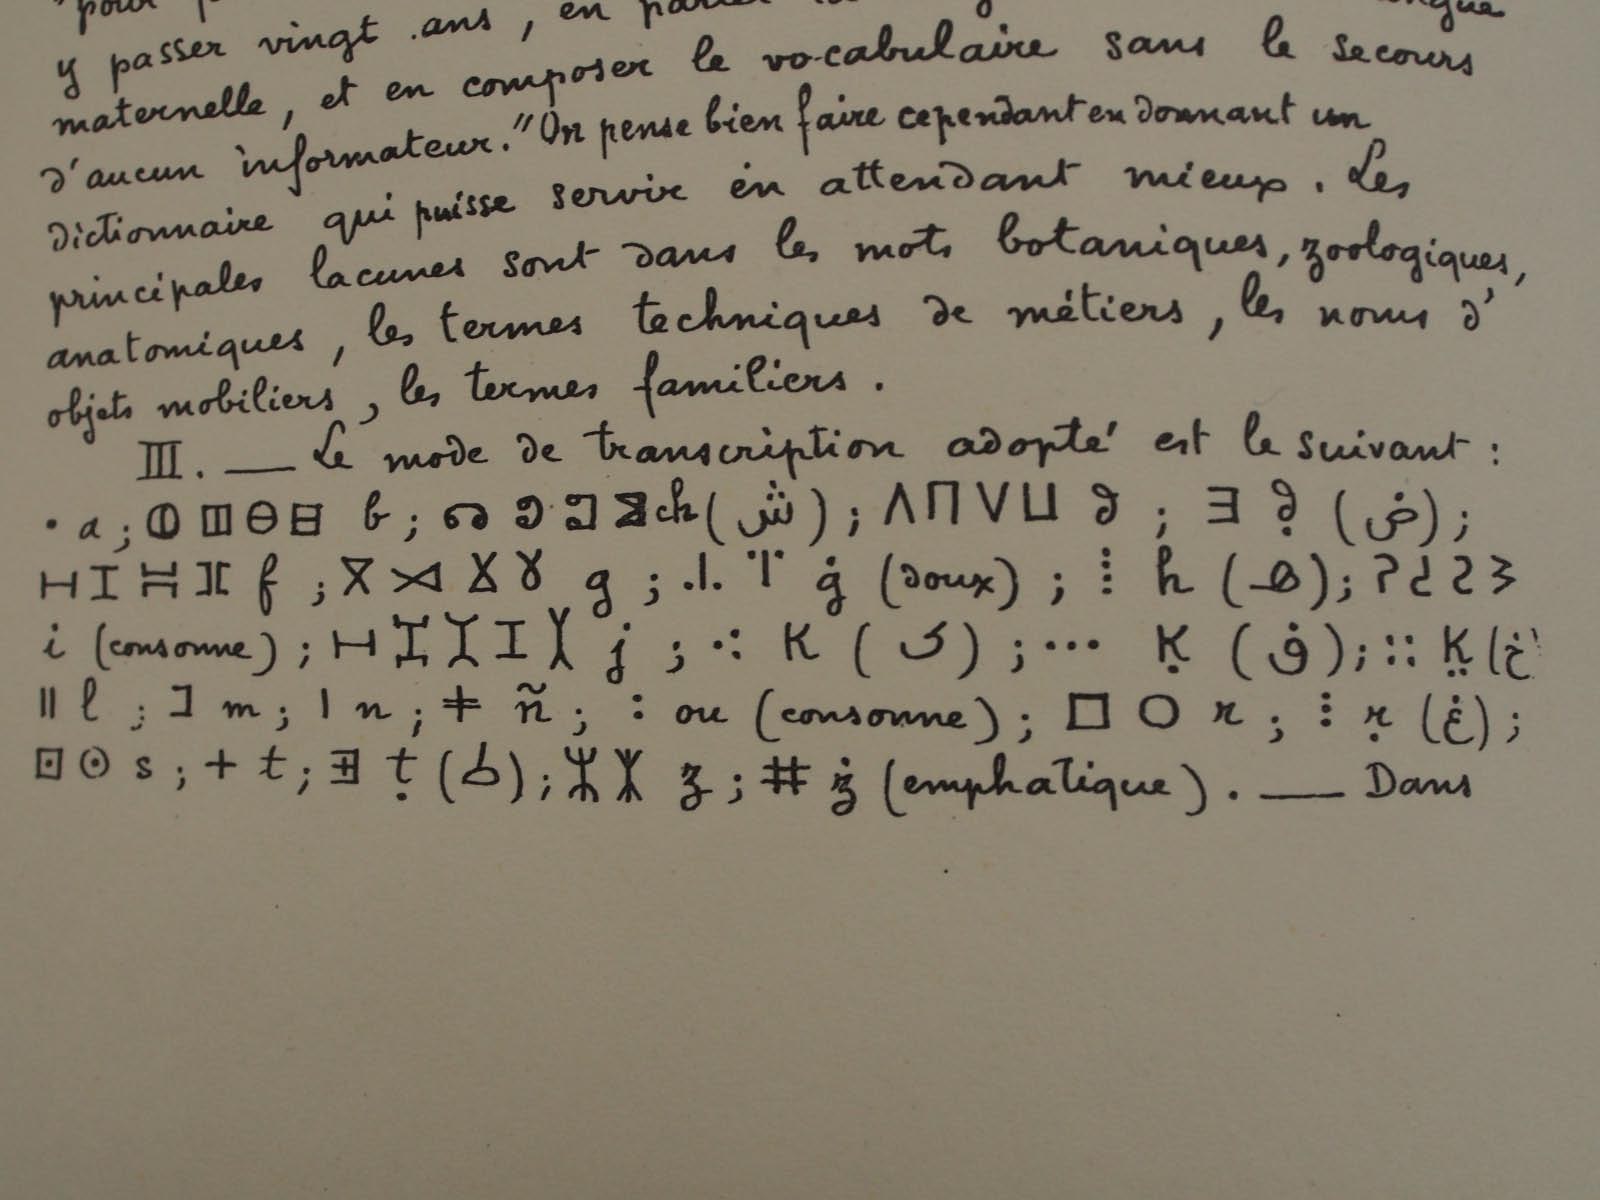 "pour
y passer vingt ans, en
maternelle, et en composer le vocabulaire sans le secours
d'aucun informateur." On pense bien faire cependant en donnant un
dictionnaire qui puisse servir en attendant mieux. Les
principales lacunes sont dans les mots botaniques, zoologiques,
anatomiques, les termes techniques de métiers, les noms d'
objets mobiliers, les termes familiers.
III. — Le mode de transcription adopté est le suivant :
· a ; ⴲ b ; ch (ش) ; ⴷ Π V ⵡ d ; ⴹ ḍ (ض) ;
ⵊ I f ; ⴳ g ; ġ (doux) ; ⵂ h (ه) ;
i (consonne) ; j ; ⴾ K (ک) ; ⵈ Ḳ (ق) ; ⵆ K̤ (خ
ⵍ l ; ⵎ m ; ⵏ n ; ǂ ñ ; : ou (consonne) ; □ ⵔ r ; ⵗ ṛ (غ) ;
⊡ ⵙ s ; + t ; ⴺ ṭ (ط) ; ⵣ z ; # ż (emphatique). — Dans